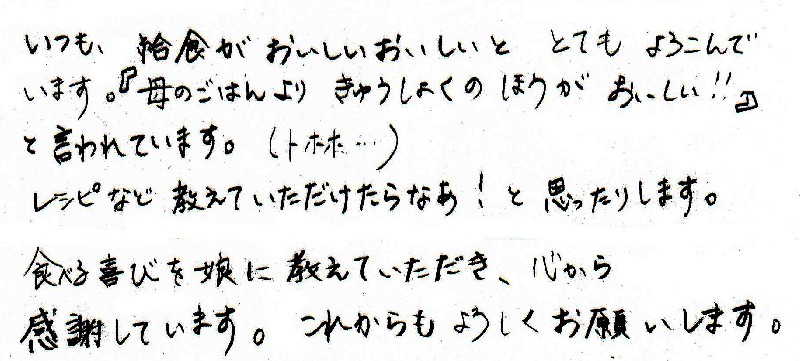 いつも、給食が おいしいおいしいと とても よろこんで
います。『母のごはんより きゅうしょくの ほうが おいしい!!』
と言われています。(トホホ…)
レシピなど 教えていただけたらなあ!と 思ったりします。
食べる喜びを 娘に 教えていただき、心から
感謝しています。これからも よろしく お願いします。